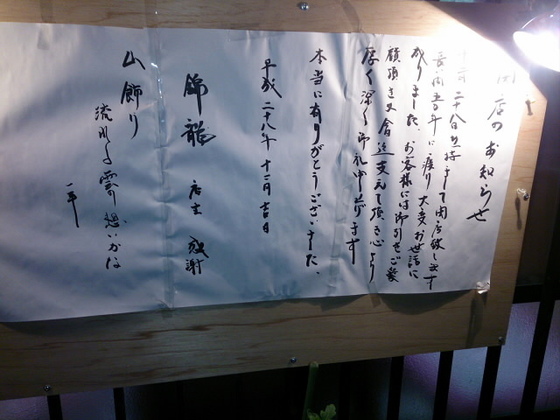 閉店のお知らせ
十二月二十八日を持ちまして閉店致します
長間五年に渡り大変お世話に
成りました。お客様には御引きご愛
顧頂き又会近支えて頂き心より
厚く深く御礼申し上げます
本当に有りがとうございました。
平成二十八年十二月吉日
錦龍 店主 感謝
山飾り
流れる雲
想いかな